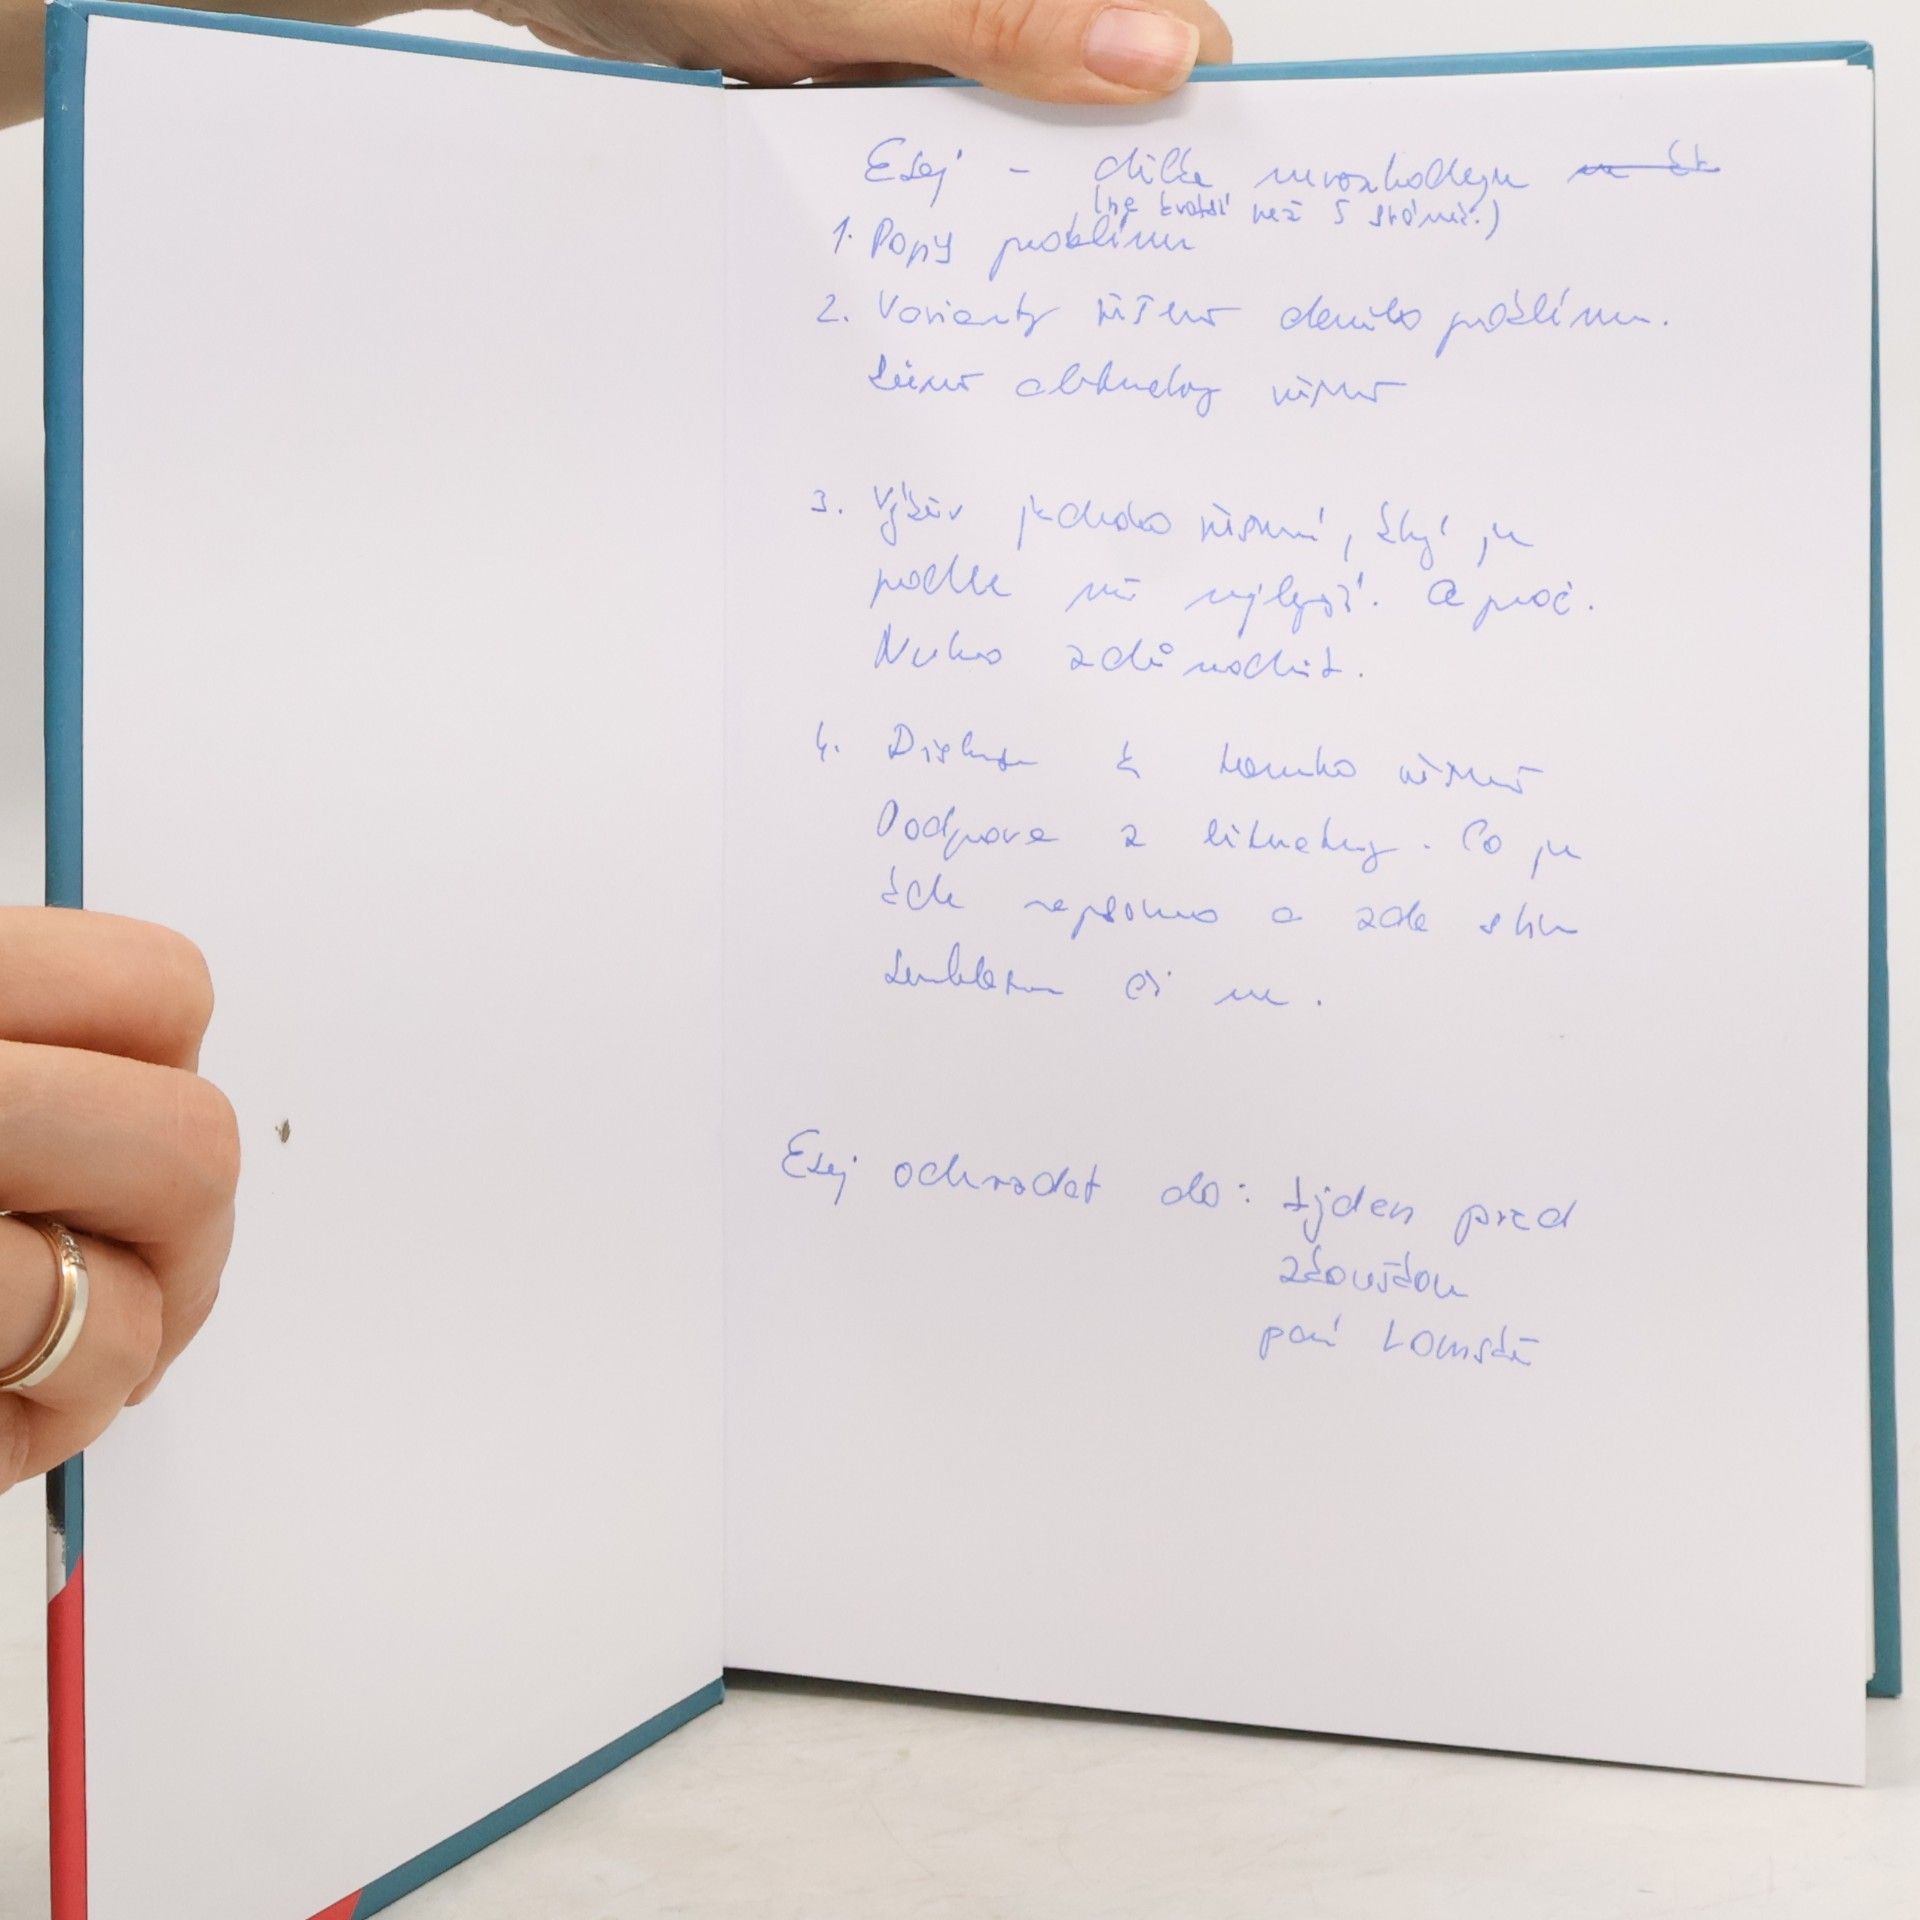 Esej - délka nerozhoduje
(ne kratší než 5 stránek.)
1. Popis problému
2. Varianty řešení daného problému.
různé alternativy řešení
3. Výběr jednoho řešení, který je
podle mě nejlepší. A proč.
Nutno zdůvodnit.
4. Diskuze k tomuto řešení
Podpora z literatury. Co je
kde napsáno a zde s tím
souhlasím či ne.
Esej odevzdat do: týden před
zkouškou
paní